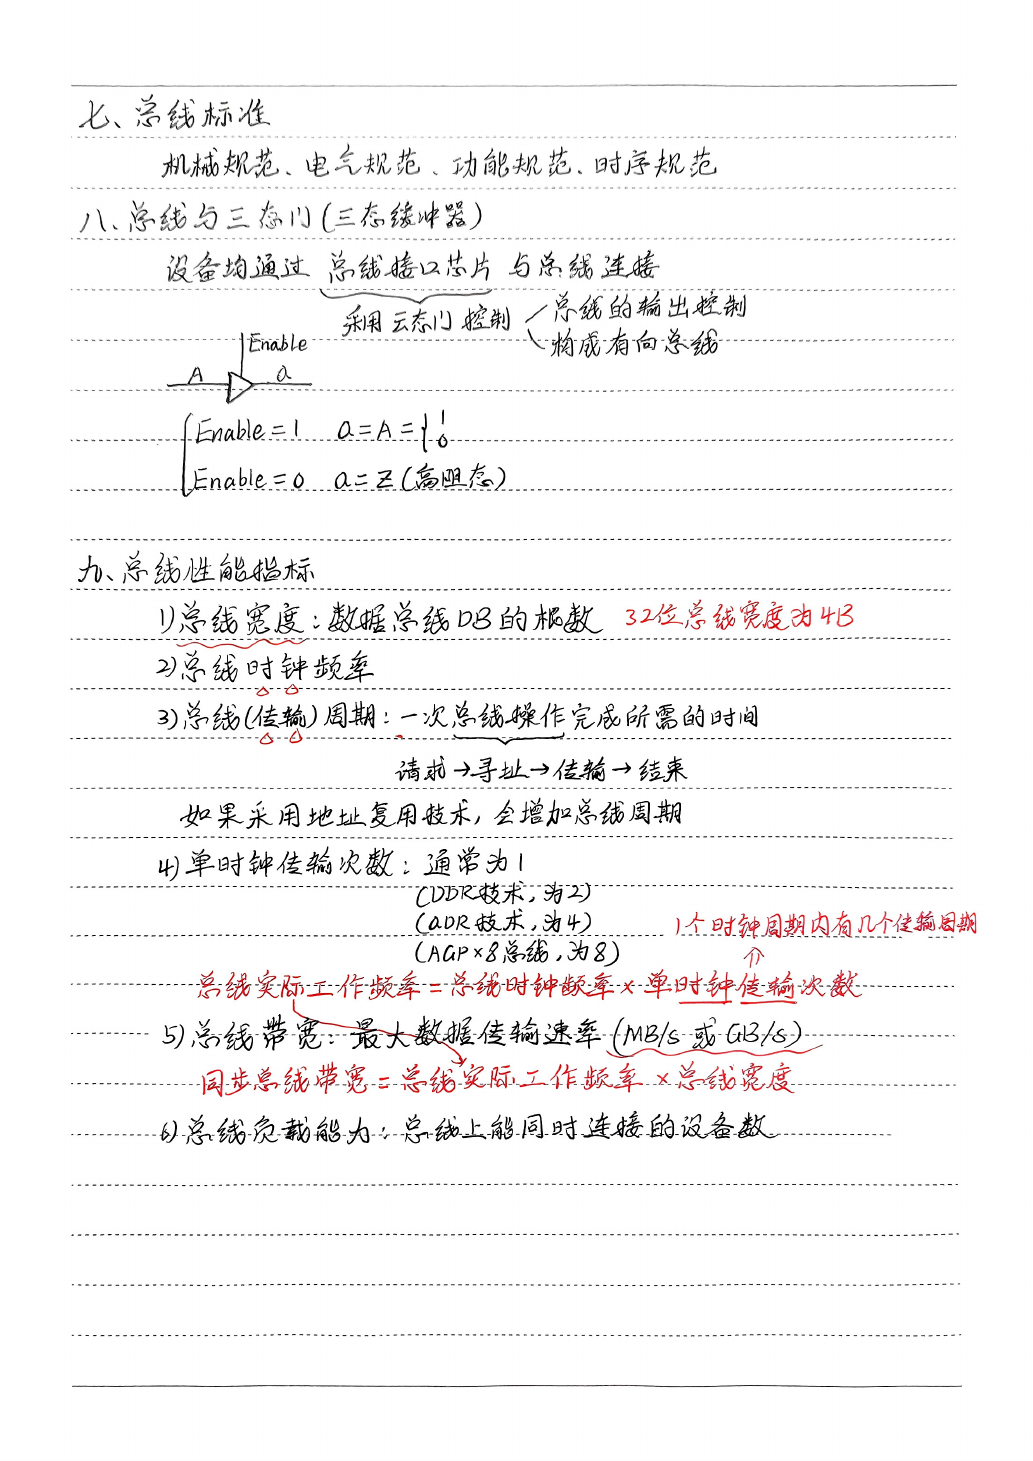 七、总线标准
机械规范、电气规范、功能规范、时序规范
八、总线与三态门(三态缓冲器)
设备均通过 总线接口芯片 与总线连接
采用三态门控制
总线的输出控制
构成有向总线
Enable
A
a
Enable=1 a=A={1 0
Enable=0 a=Z(高阻态)
九、总线性能指标
1)总线宽度:数据总线DB的根数 32位总线宽度为4B
2)总线时钟频率
3)总线(传输)周期:一次总线操作完成所需的时间
请求→寻址→传输→结束
如果采用地址复用技术,会增加总线周期
4)单时钟传输次数:通常为1
(DDR技术,为2)
(QDR技术,为4)
1个时钟周期内有几个传输周期
(AGP×8总线,为8)
总线实际工作频率=总线时钟频率×单时钟传输次数
5)总线带宽:最大数据传输速率(MB/s 或 GB/s)
同步总线带宽=总线实际工作频率×总线宽度
6)总线负载能力:总线上能同时连接的设备数